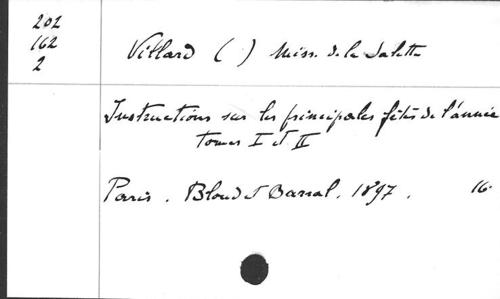 202
162
2
Villard ( ) Miss. de la Salette
Instructions sur les principales fêtes de l'année
Tomes I et II
Paris. Bloud et Barral. 1897. 16